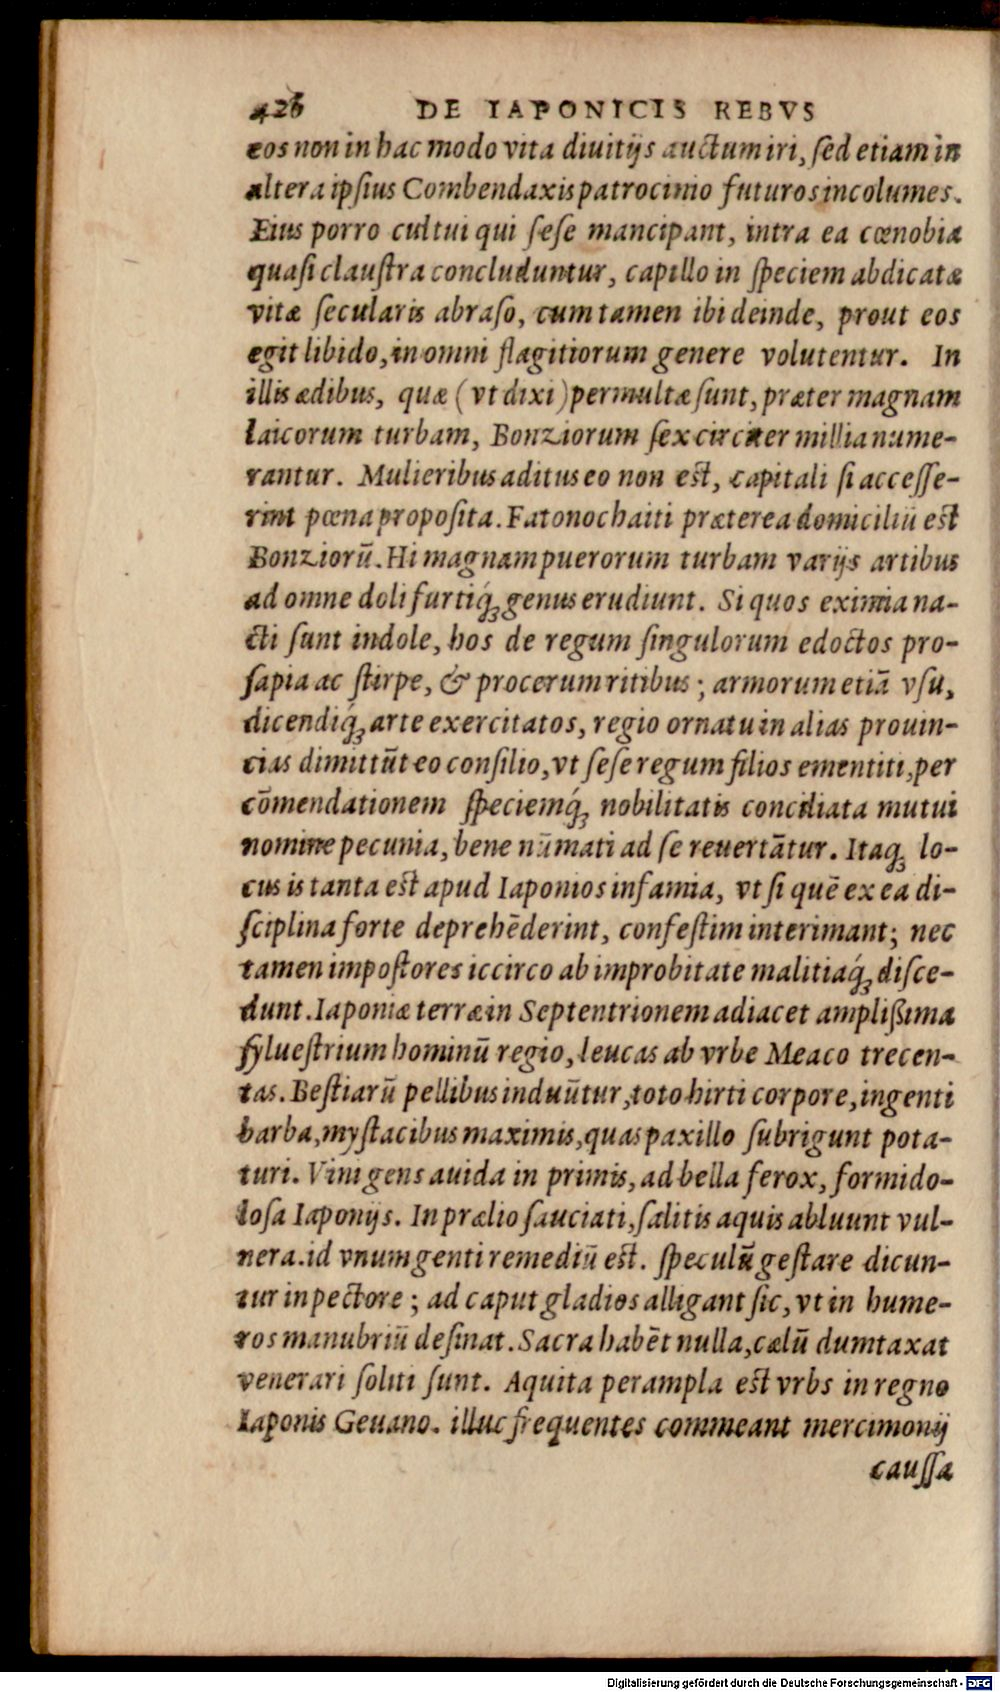 426 DE IAPONICIS REBVS
eos non in hac modo vita diuitijs auctum iri, ſed etiam in
altera ipſius Combendaxis patrocinio futuros incolumes.
Eius porro cultui qui ſeſe mancipant, intra ea cœnobia
quaſi clauſtra concluduntur, capillo in ſpeciem abdicatæ
vitæ ſecularis abraſo, cum tamen ibi deinde, prout eos
egit libido, in omni flagitiorum genere volutentur. In
illis ædibus, quæ (vt dixi) permultæ ſunt, præter magnam
laicorum turbam, Bonziorum ſex circiter millia nume-
rantur. Mulieribus aditus eo non est, capitali ſi acceſſe-
rint pœna propoſita. Fatonochaiti præterea domiciliū est
Bonziorū. Hi magnam puerorum turbam varijs artibus
ad omne doli furtiq́; genus erudiunt. Si quos eximia na-
cti ſunt indole, hos de regum ſingulorum edoctos pro-
ſapia ac ſtirpe, & procerum ritibus; armorum etiā vſu,
dicendiq́; arte exercitatos, regio ornatu in alias prouin-
cias dimittūt eo conſilio, vt ſeſe regum filios ementiti, per
cōmendationem ſpeciemq́; nobilitatis conciliata mutui
nomine pecunia, bene nūmati ad ſe reuertātur. Itaq; lo-
cus is tanta est apud Iaponios infamia, vt ſi quē ex ea di-
ſciplina forte deprehēderint, confeſtim interimant; nec
tamen impoſtores iccirco ab improbitate malitiaq́; diſce-
dunt. Iaponiæ terræ in Septentrionem adiacet amplißima
ſylueſtrium hominū regio, leucas ab vrbe Meaco trecen-
tas. Beſtiarū pellibus induūtur, toto hirti corpore, ingenti
barba, myſtacibus maximis, quas paxillo ſubrigunt pota-
turi. Vini gens auida in primis, ad bella ferox, formido-
loſa Iaponijs. In prælio ſauciati, ſalitis aquis abluunt vul-
nera. id vnum genti remediū est. ſpeculū geſtare dicun-
tur in pectore; ad caput gladios alligant ſic, vt in hume-
ros manubriū deſinat. Sacra habēt nulla, cælū dumtaxat
venerari ſoliti ſunt. Aquita perampla est vrbs in regno
Iaponis Geuano. illuc frequentes commeant mercimonij
cauſſa
Digitalisierung gefördert durch die Deutsche Forschungsgemeinschaft - DFG